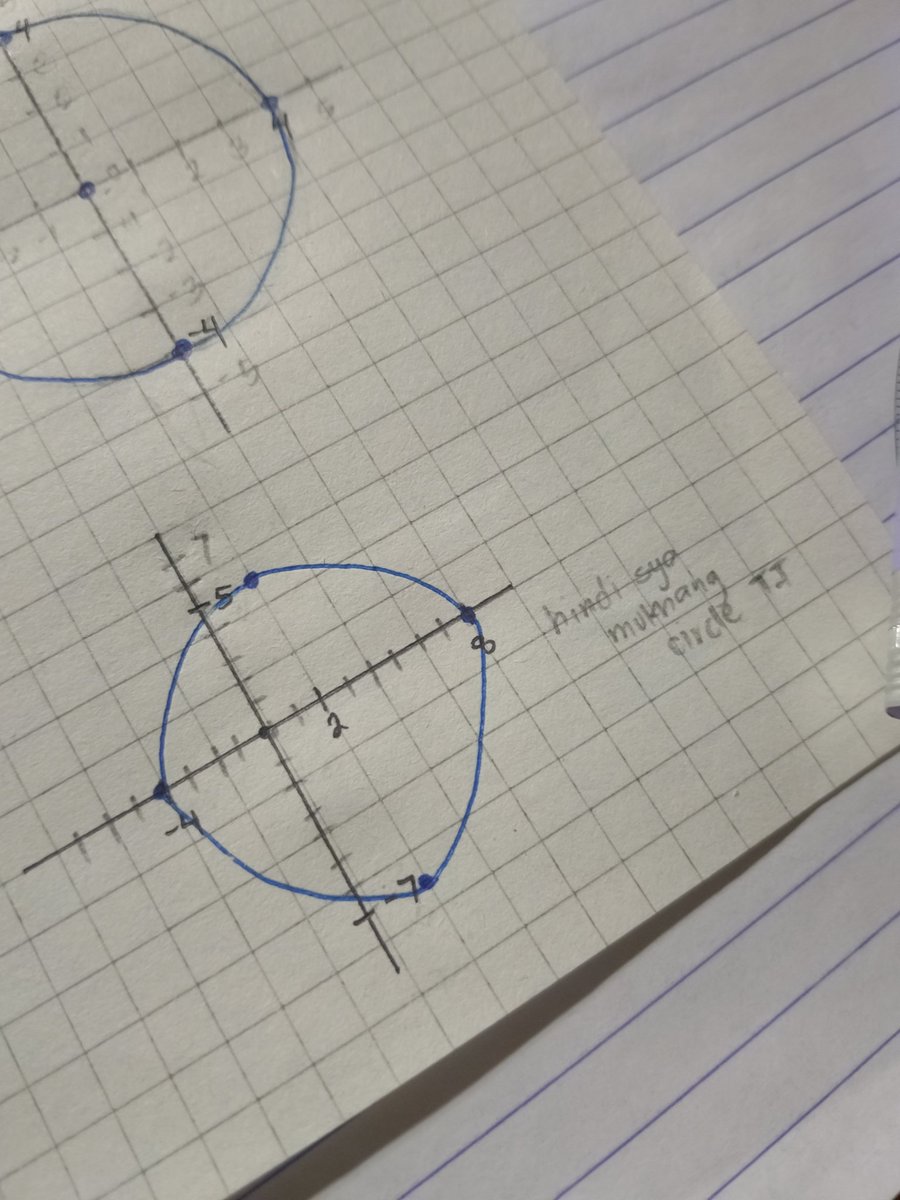 4
4
2
3
-4
-5
7
5
8
2
-4
-7
hindi sya
mukhang
circle TT